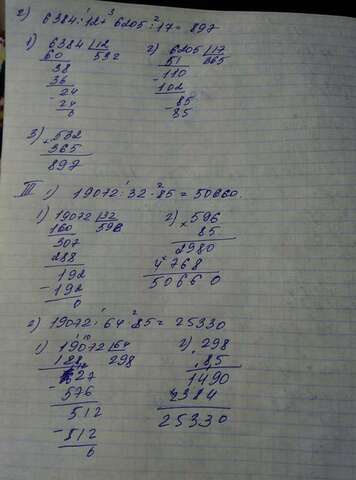 2) 6384:12+6205:17=897
1) 6384 |12
60 532
38
36
24
24
0
2) 6205 |17
51 365
110
102
85
85
3) 532
365
897
III 1) 19072:32·85=50660.
1) 19072 |32
160 596
307
288
192
192
0
2) 596
× 85
2980
4768
50660
2) 19072:64·85=25330
1) 19072 |64
128 298
627
576
512
512
0
2) 298
85
1490
2384
25330